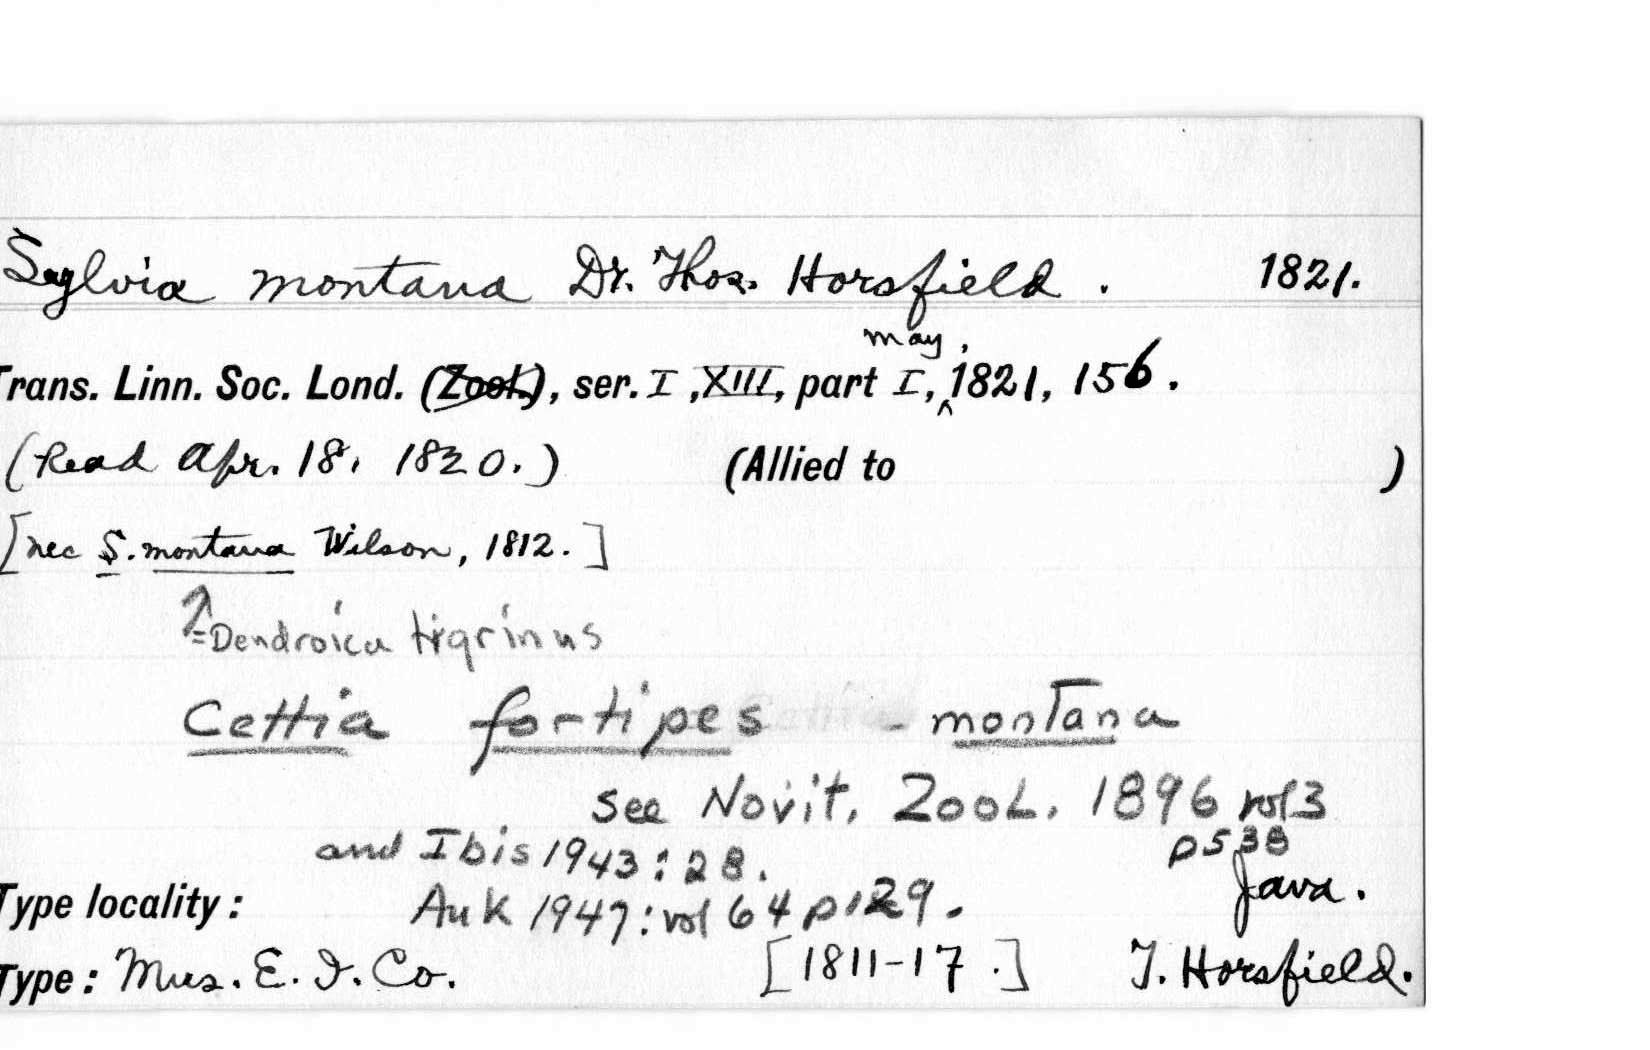 Sylvia montana Dr. Thos. Horsfield. 1821.
Trans. Linn. Soc. Lond. (Zool.), ser. I, XIII, part I, May, 1821, 156.
(Read Apr. 18, 1820.) (Allied to )
[nec S. montana Wilson, 1812.]
↑ = Dendroica tigrinus
Cettia fortipes - montana
see Novit. Zool. 1896 vol 3
p 538
and Ibis 1943: 28.
Java.
Type locality: Auk 1947: vol 64 p 129.
Type: Mus. E. I. Co. [1811-17.] T. Horsfield.